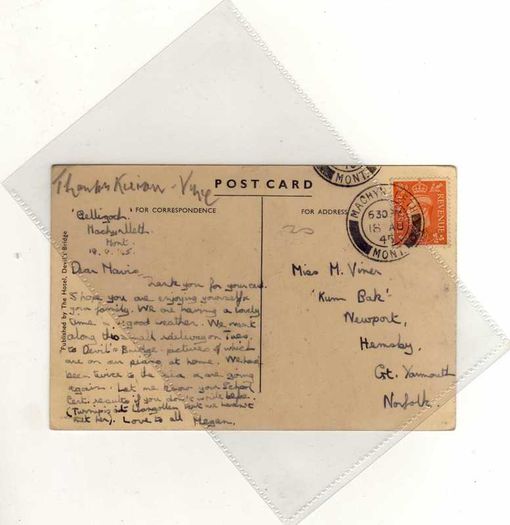 Thanks Kieran -
POST CARD
FOR CORRESPONDENCE
FOR ADDRESS
Published by The Hotel, Devil's Bridge
MACHYN
6 30
18 AU
45
MONT.
MONT.
REVENUE
Gelligoch
Machynlleth
Mont.
Dear Mavis
Thank you for your card.
I hope you are enjoying yourself
your family. We are having a lovely
time & good weather. We went
along the small railway on Tues.
to Devil's Bridge pictures of which
are on our piano at home. We have
been twice to the sea & are going
again. Let me know your School
Cert. results if you don't write before.
(Turnip's at Llangollen but we haven't
met her). Love to all Megan.
Miss M. Viner
'Kumm Bak'
Newport,
Hemsby,
Gt. Yarmouth
Norfolk